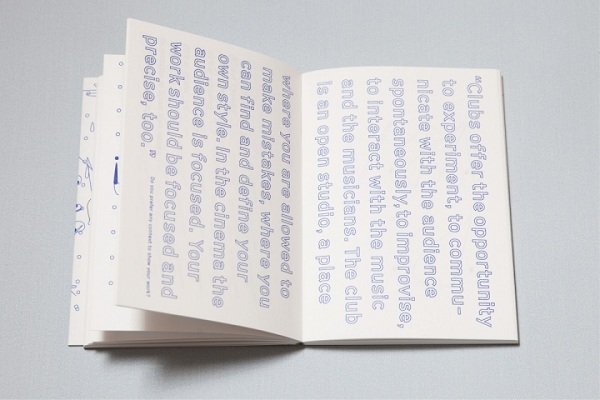 “Clubs offer the opportunity
to experiment, to commu-
nicate with the audience
spontaneously, to improvise,
to interact with the music
and the musicians. The club
is an open studio, a place
where you are allowed to
make mistakes, where you
can find and define your
own style. In the cinema the
audience is focused. Your
work should be focused and
precise, too. ”
Do you prefer any context to show your work?